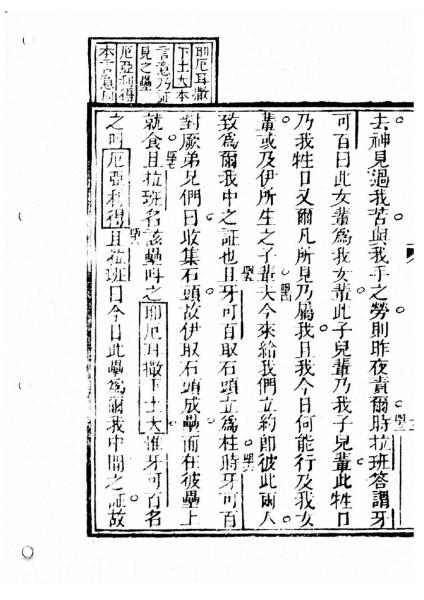 耶厄耳撒
下土大本
言意乃証
見之壘
厄亞利得
本言意同
去神見過我苦與我手之勞則昨夜責爾時拉班答謂牙
可百曰此女輩為我女輩此子兒輩乃我子兒輩此牲口
乃我牲口又爾凡所見乃屬我且我今日何能行及我女
輩或及伊所生之子輩夫今來給我們立約即彼此兩人
致為爾我中之証也且牙可百取石頭立為柱時牙可百
對厥弟兄們曰收集石頭故伊取石頭成壘而在彼壘上
就食且拉班名該壘呌之耶厄耳撒下土大惟牙可百名
之呌厄亞利得且拉班曰今日此壘為爾我中間之証故